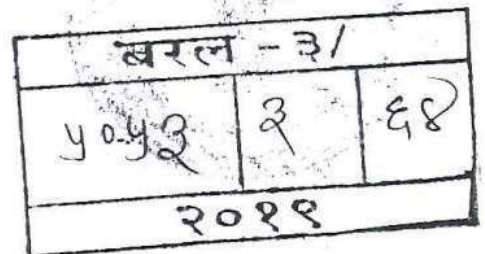 बरल - ३/
५०५३ ३ ६४
२०१९